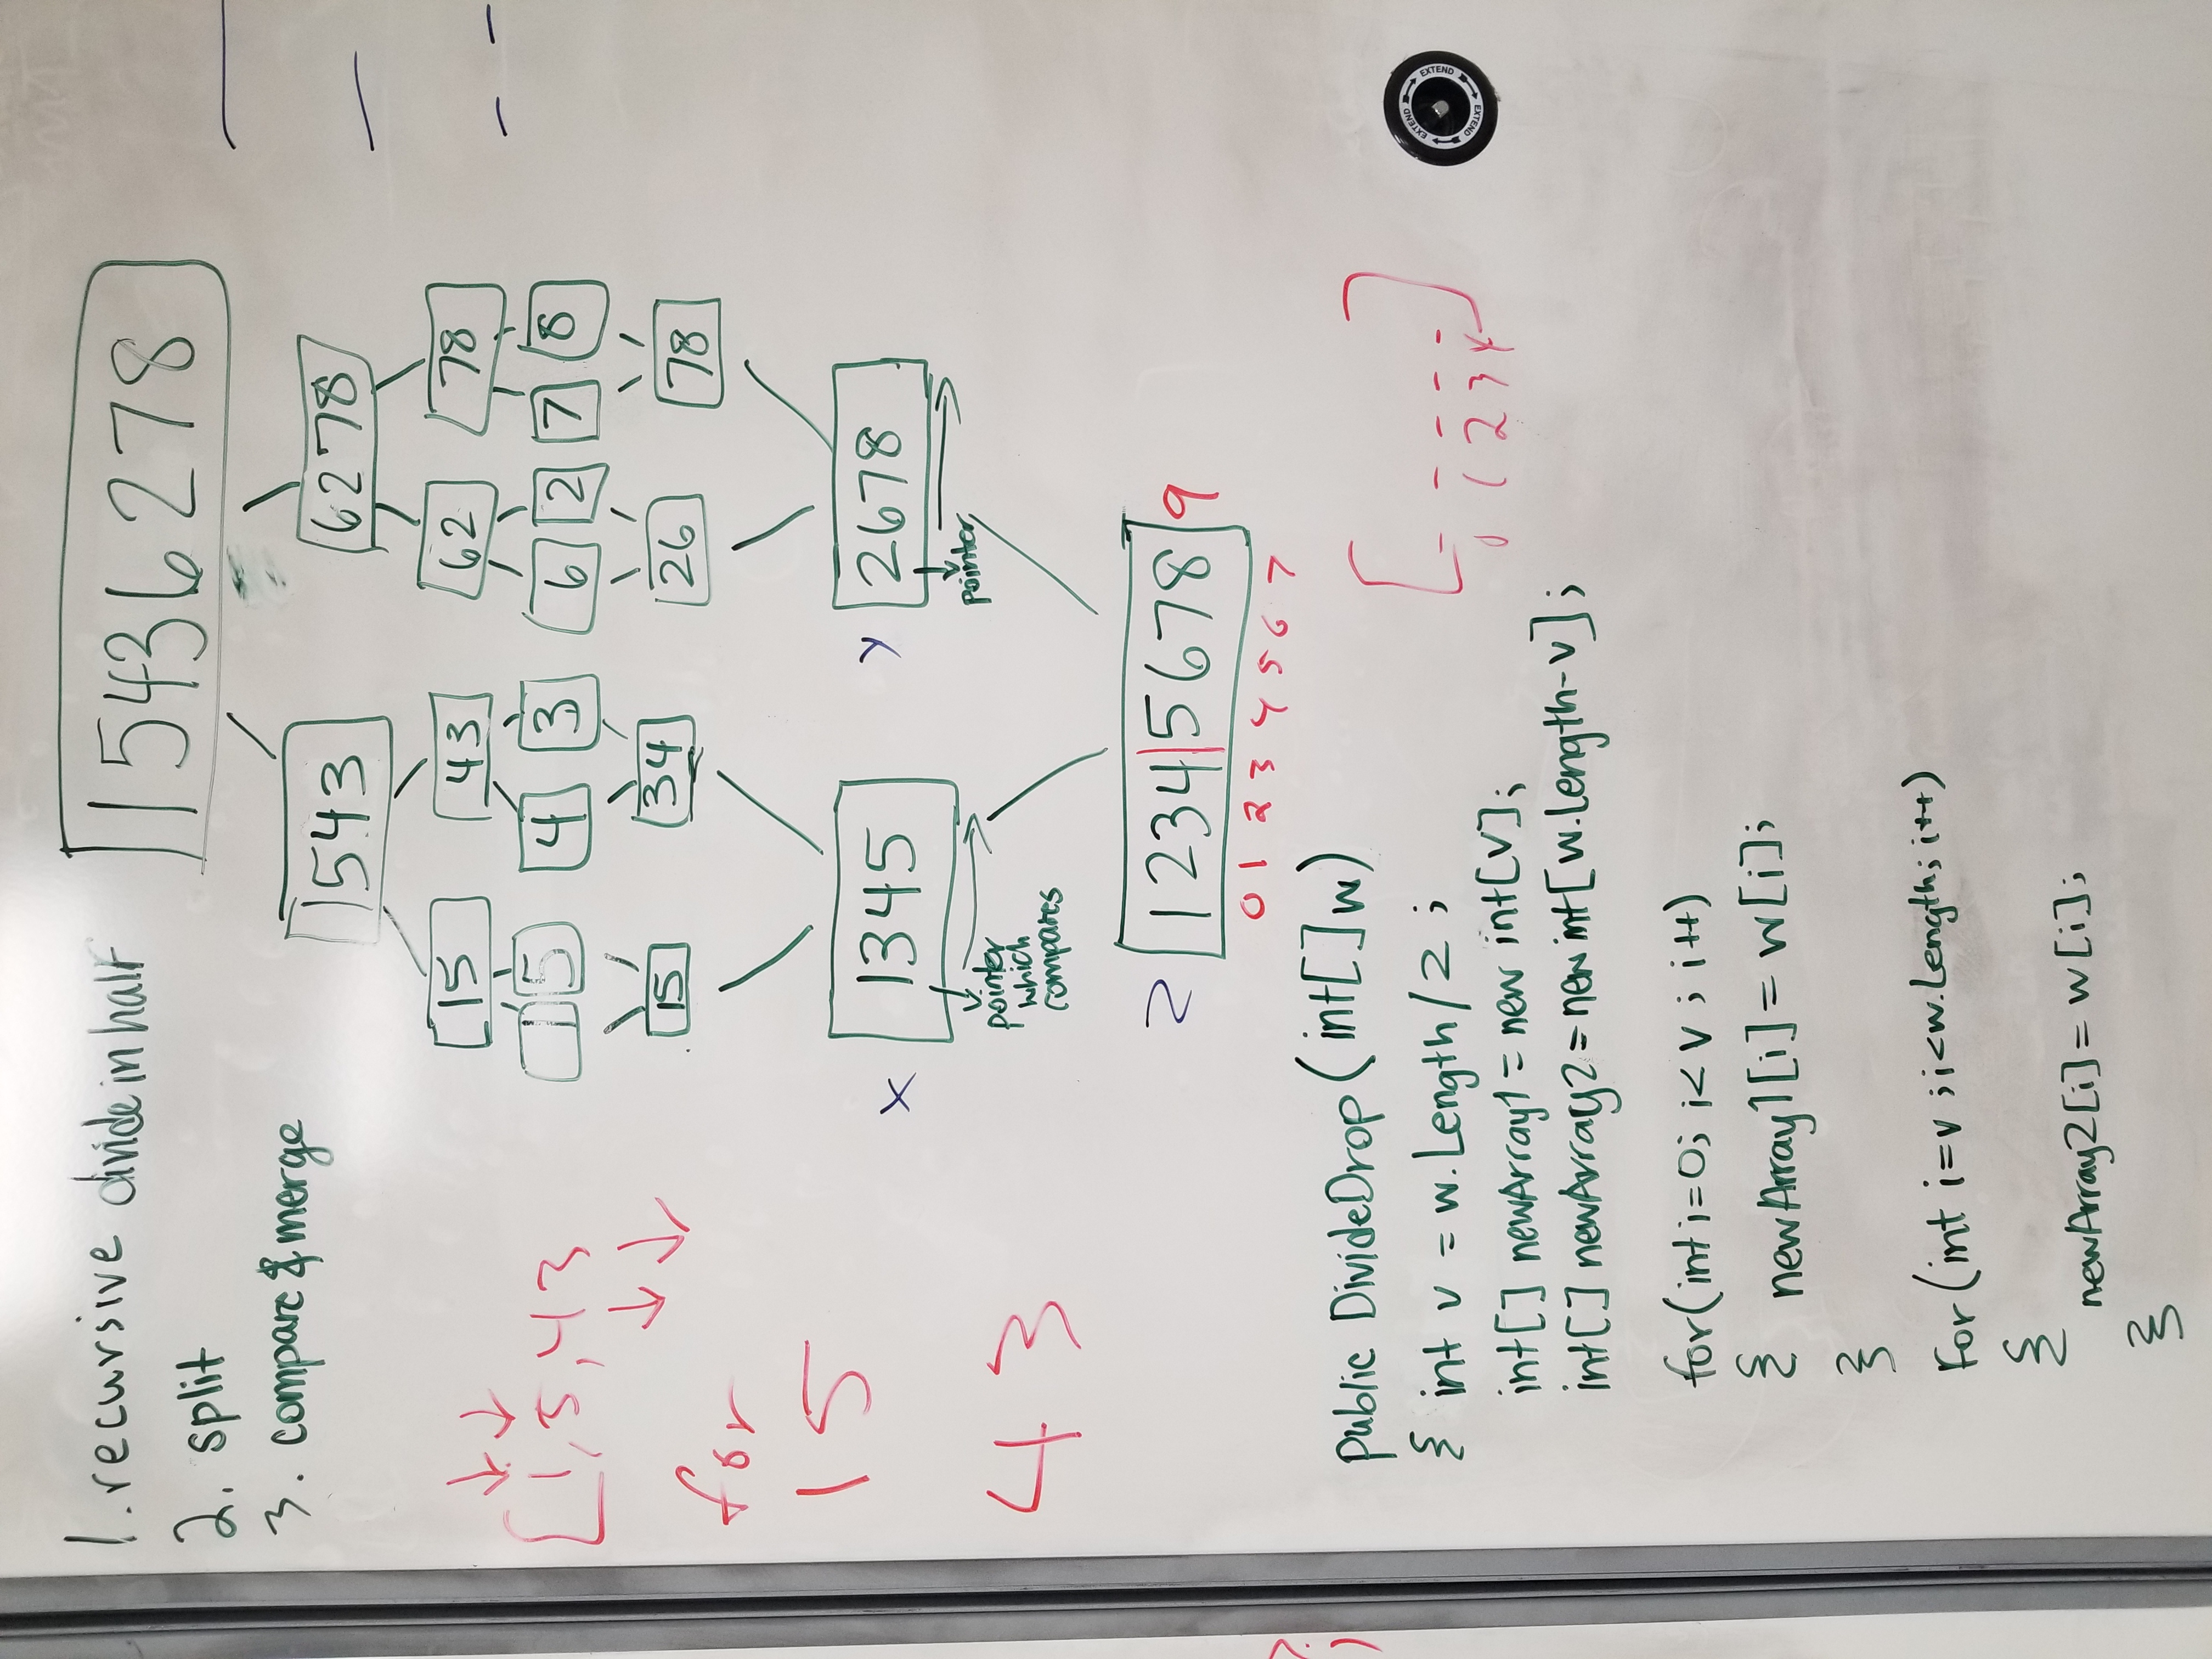 1. recursive divide in half
2. split
3. compare & merge
15436278
1543 6278
15 43 62 78
1 5 4 3 6 2 7 8
15 34 26 78
[1,5,43
for
15
43
x 1345 y 2678
pointer
which
compares
pointer
z 1234|5678 9
0 1 2 3 4 5 6 7
public DivideDrop(int[]w)
{ int v = w.Length/2 ;
int[] newArray1 = new int[v];
int[] newArray2 = new int[w.length-v];
for(int i=0; i<v ; i++)
{ newArray1[i] = w[i];
}
For(int i=v ;i<w.Length; i++)
{
newArray2[i] = w[i];
}
[_ _ _ _ _]
0 1 2 3 4
EXTEND EXTEND EXTEND EXTEND